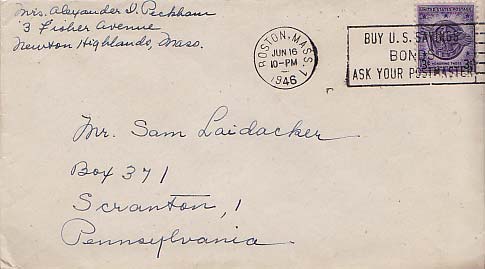 Mrs. Alexander D. Peckham
3 Fisher Avenue
Newton Highlands, Mass.
BOSTON, MASS. 1
JUN 16
10-PM
1946
BUY U.S. SAVINGS
BONDS
ASK YOUR POSTMASTER
UNITED STATES POSTAGE
3¢
Mr. Sam Laidacker
Box 371
Scranton, 1
Pennsylvania.